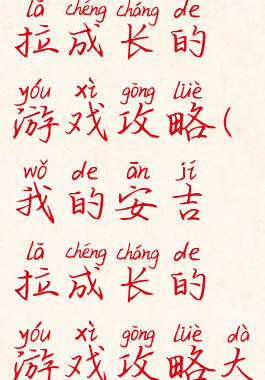 lā chéng cháng de
拉成长的
yóu xì gōng lüè
游戏攻略(
wǒ de ān jí
我的安吉
lā chéng cháng de
拉成长的
yóu xì gōng lüè dà
游戏攻略大